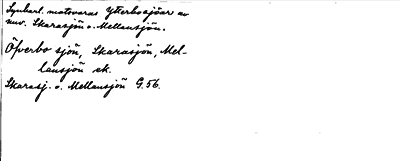 Synbarl. motsvaras Ytterbosjöar av
nuv. Skarasjön o. Mellansjön.
Öfverbo sjön, Skarasjön, Mel-
lansjön ek.
Skarasj. o. Mellansjön G. 56.